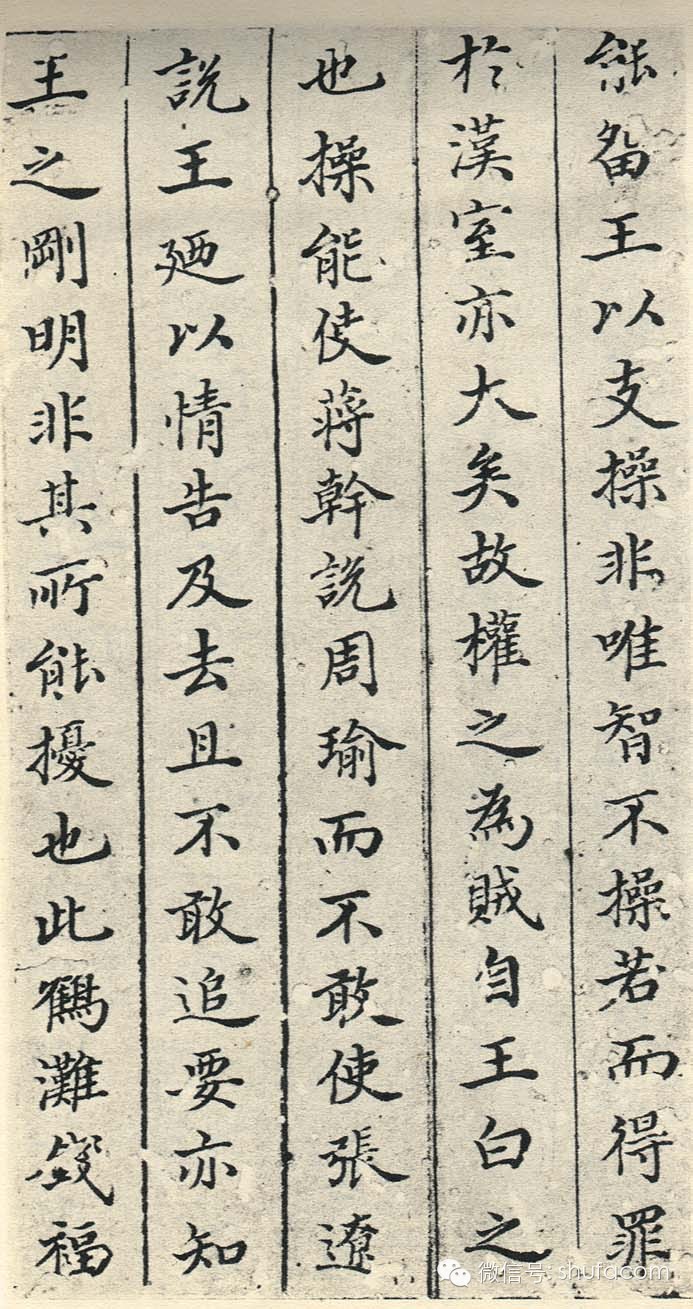 能畱王以支操非唯智不操若而得罪
於漢室亦大矣故權之為賊自王白之
也操能使蔣幹說周瑜而不敢使張遼
說王廼以情告及去且不敢追要亦知
王之剛明非其所能擾也此鶴灘錢福
微信号: shufacom